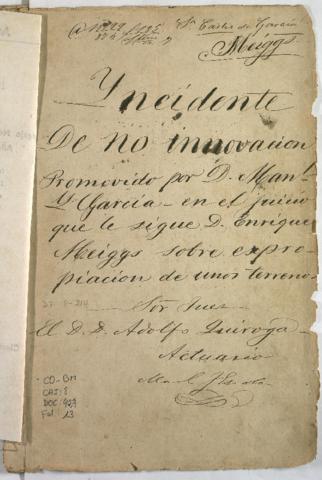 Sn Carlos de Garcia
Meiggs
Yncidente
De no innovacion
Promovido por D. Manl.
Garcia en el juicio
que le sigue D. Enrique
Meiggs sobre expro-
piacion de unos terrenos
Sor Juez
El D. D. Adolfo Quiroga
Actuario
CO-BM
CAJ: 8
DOC: 423
Fol: 13